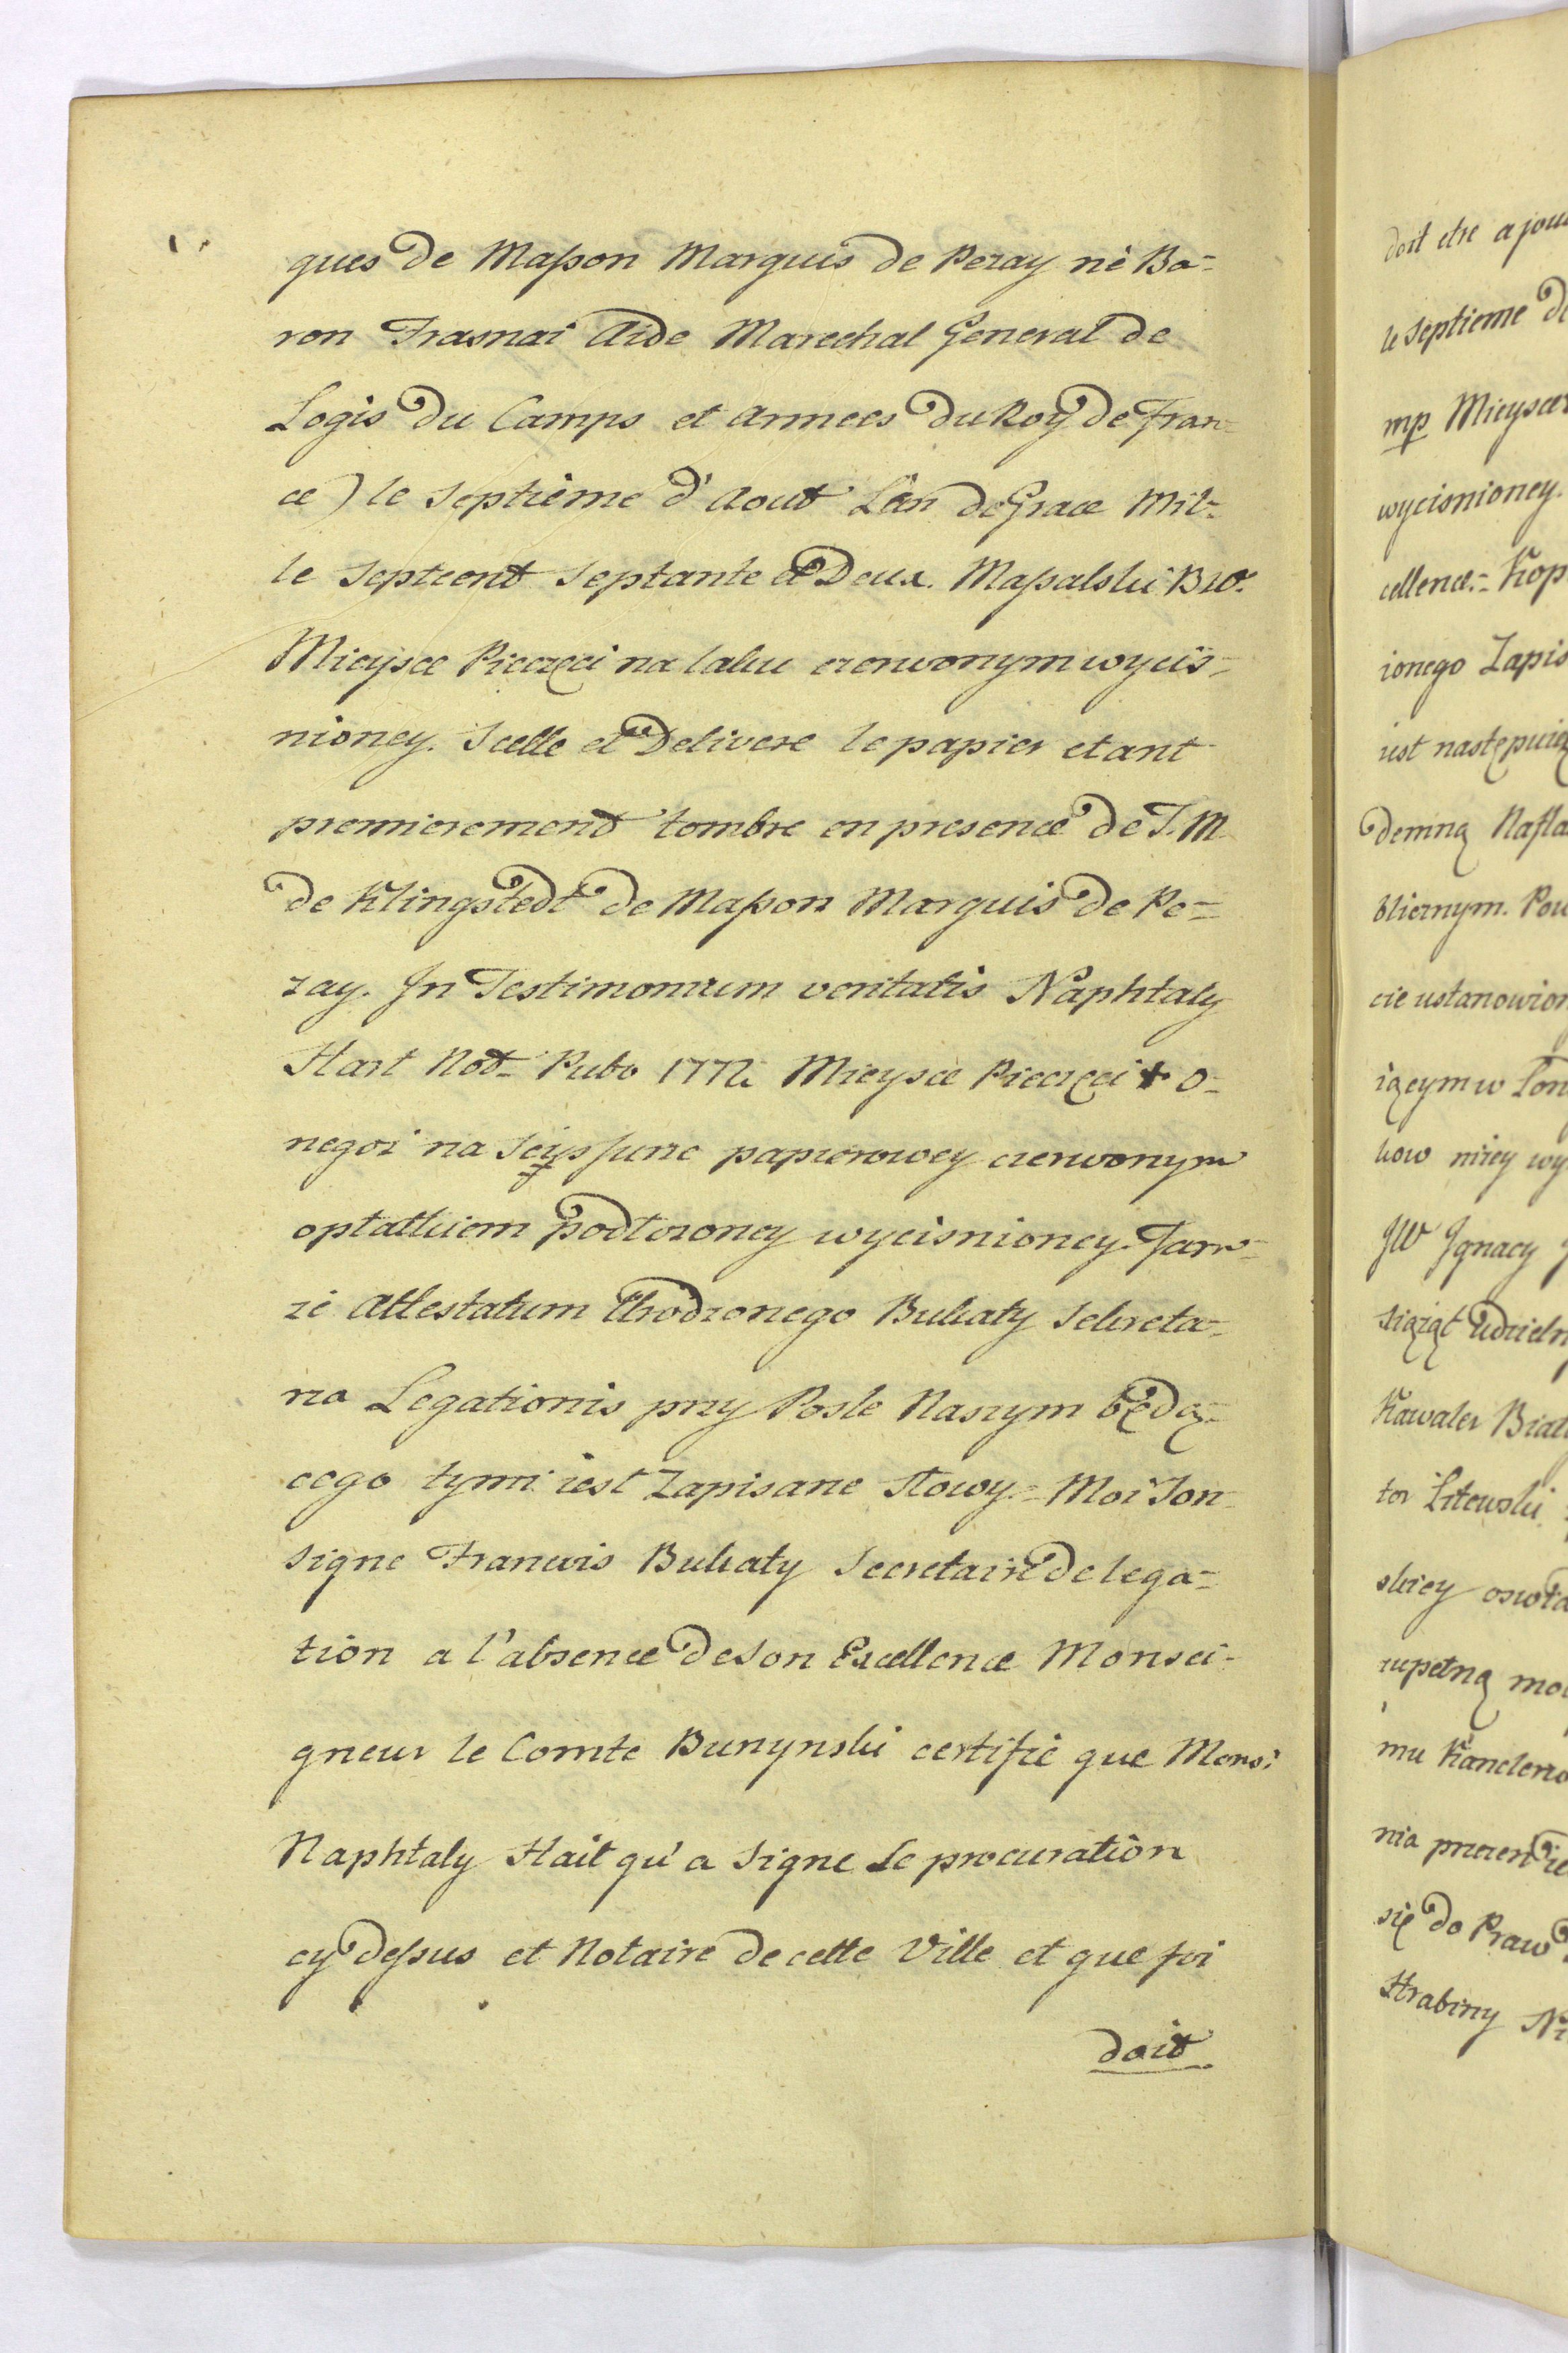 ques de Maſson Marquis de Pezay né Ba=
ron Frasnai Aide Marechal General de
Logis du Camps et Armees du Roy de Fran=
ce) le septième d'Aout L'an de Grace Mil=
le Septcent Septante et Deux. Maſsalski BW.
Mieysce Pieczęci na laku czerwonym wyciś=
nioney. Scelle et Delivere le papier etant
premierement tombre en presence de J. M
de Klingstedt de Maſson Marquis de Pe=
zay. In Testimonium veritatis Naphtaly
Hart Not= Pubo 1772. Mieysce Pieczęci + o=
negoż na papierowey czerwonym
opłatkiem podłożoney wycisnioney. Tam=
że Attestatum Urodzonego Bukaty Sekreta=
rza Legationis przy Posle Naszym będą=
cego tymi iest Zapisane słowy = Moi Son=
signe Francois Bukaty Secretaire de lega=
tion a l'absence de Son Excellence Monsei=
gneur le Comte Burzynski certifie que Mons:
Naphtaly Hait qu'a signe Le procuration
cy deſsus et Notaire de cette Ville et que foi
doit
doit etre a jou
le Septieme d
mp Mieysce
wycisnioney.
cellence = Kop
ionego Zapis
iest następuią
denną
blicznym. Pou
cie ustanowion
iącym w Lon
kow niżey wy
JW Ignacy
siąząt Udzieln
Kawaler Biał
tor Litewski
skiey
zupełną mo
mu Kanclerzo
nia
się do Praw
Hrabiny